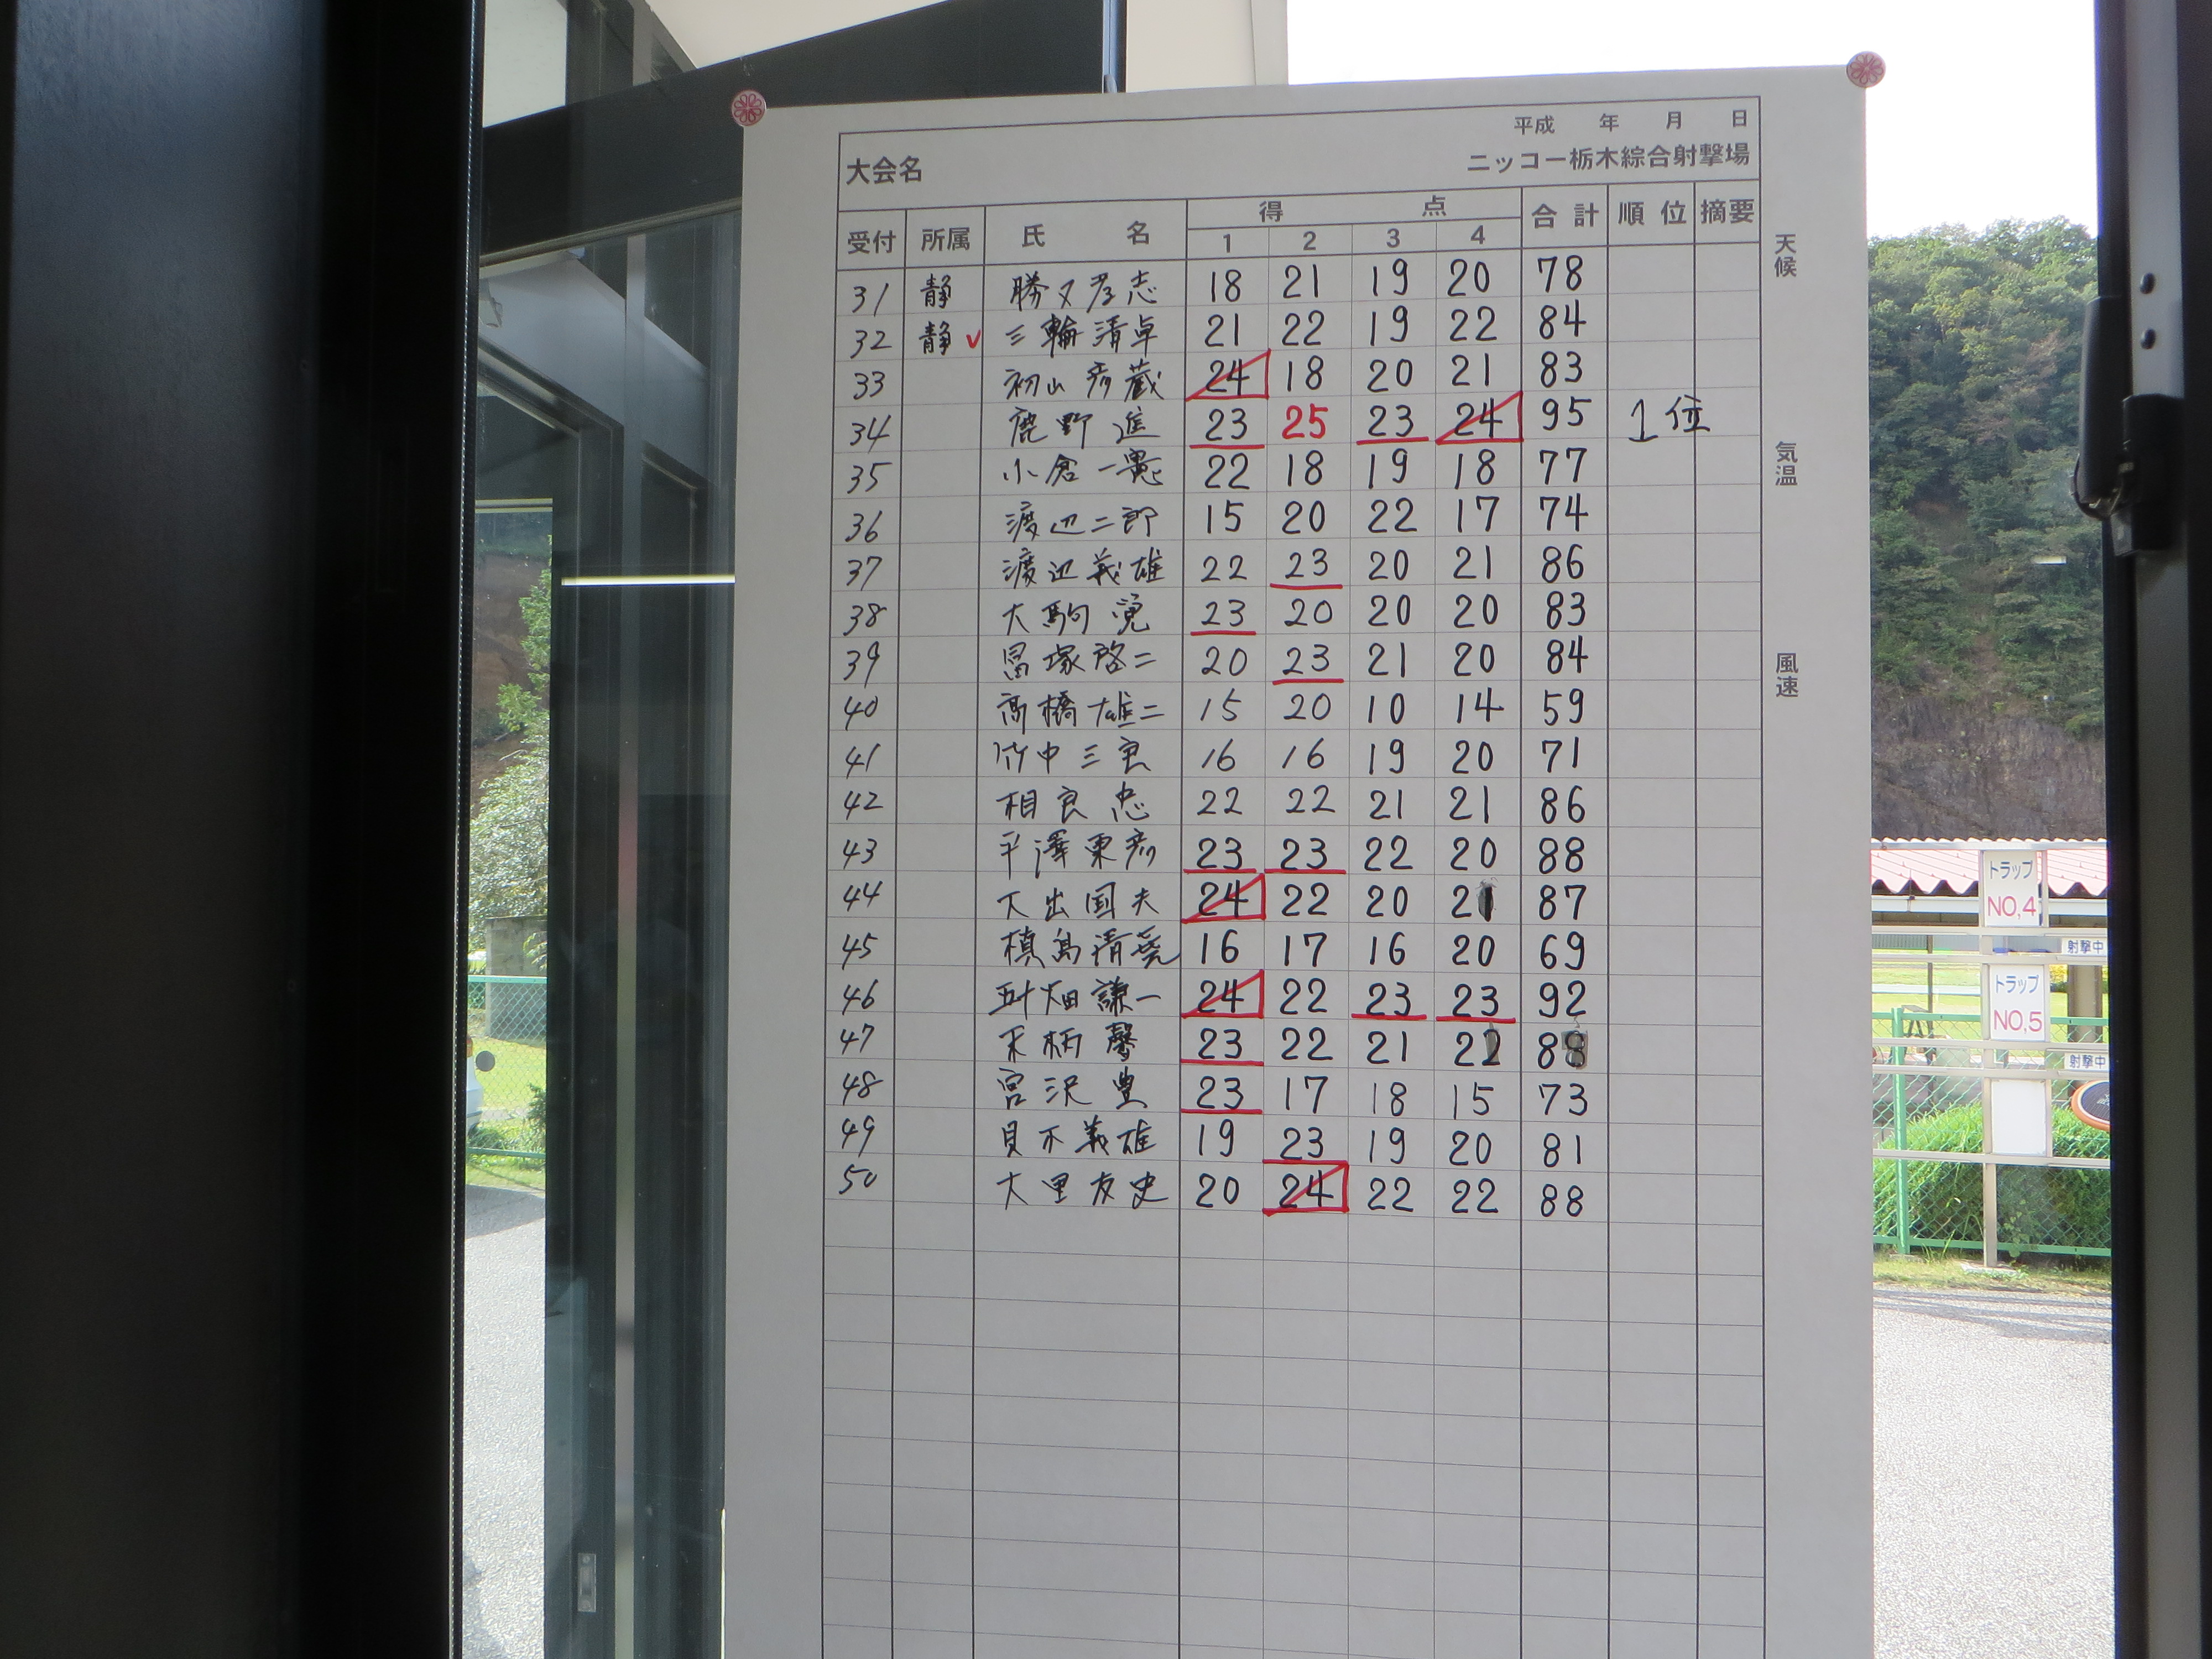 平成 年 月 日
大会名 ニッコー栃木綜合射撃場
受付 所属 氏名 得点 合計 順位 摘要
1 2 3 4
31 静 勝又孝志 18 21 19 20 78
32 静 三輪清卓 21 22 19 22 84
33 初山彦蔵 24 18 20 21 83
34 鹿野進 23 25 23 24 95 1位
35 小倉一憲 22 18 19 18 77
36 渡辺二郎 15 20 22 17 74
37 渡辺義雄 22 23 20 21 86
38 大駒 23 20 20 20 83
39 冨塚啓二 20 23 21 20 84
40 高橋雄二 15 20 10 14 59
41 竹中三良 16 16 19 20 71
42 相良忠 22 22 21 21 86
43 平澤東彦 23 23 22 20 88
44 大出国夫 24 22 20 21 87
45 槙島清 16 17 16 20 69
46 五十畑謙一 24 22 23 23 92
47 柄馨 23 22 21 22 88
48 宮沢豊 23 17 18 15 73
49 貝木義雄 19 23 19 20 81
50 大里友史 20 24 22 22 88
天候
気温
風速
トラップ
NO,4
射撃中
トラップ
NO,5
射撃中